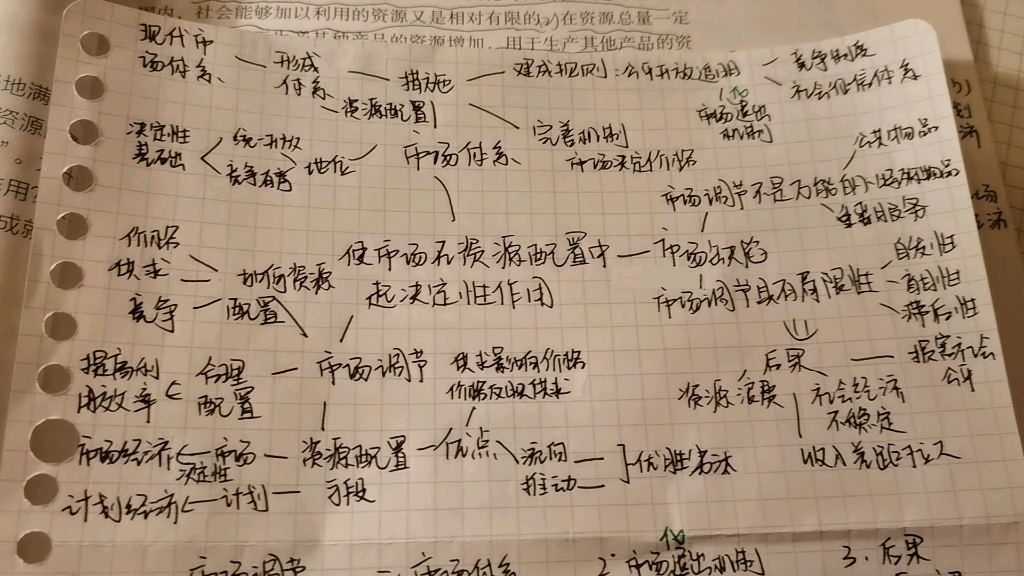 围内，社会能够加以利用的资源又是相对有限的。在资源总量一定
产品的资源增加，用于生产其他产品的资
现代市
场体系
形成
体系
措施
建成规则：公平开放透明
竞争制度
社会征信体系
优
市场退出
机制
资源配置
完善机制
市场决定价格
决定性
基础
统一开放
竞争有序
地位
市场体系
公共物品
市场调节不是万能的
重要服务
价格
供求
竞争
如何资源
配置
使市场在资源配置中
起决定性作用
市场缺陷
市场调节具有局限性
自发性
盲目性
滞后性
后果
损害社会
公平
资源浪费
社会经济
不稳定
收入差距拉大
提高利
用效率
合理
配置
市场调节
供求影响价格
价格反映供求
市场经济
市场
决定性
计划经济
计划
资源配置
手段
优点
流向
推动
优胜劣汰
市场调节
市场体系
优
2.市场退出机制
3.后果